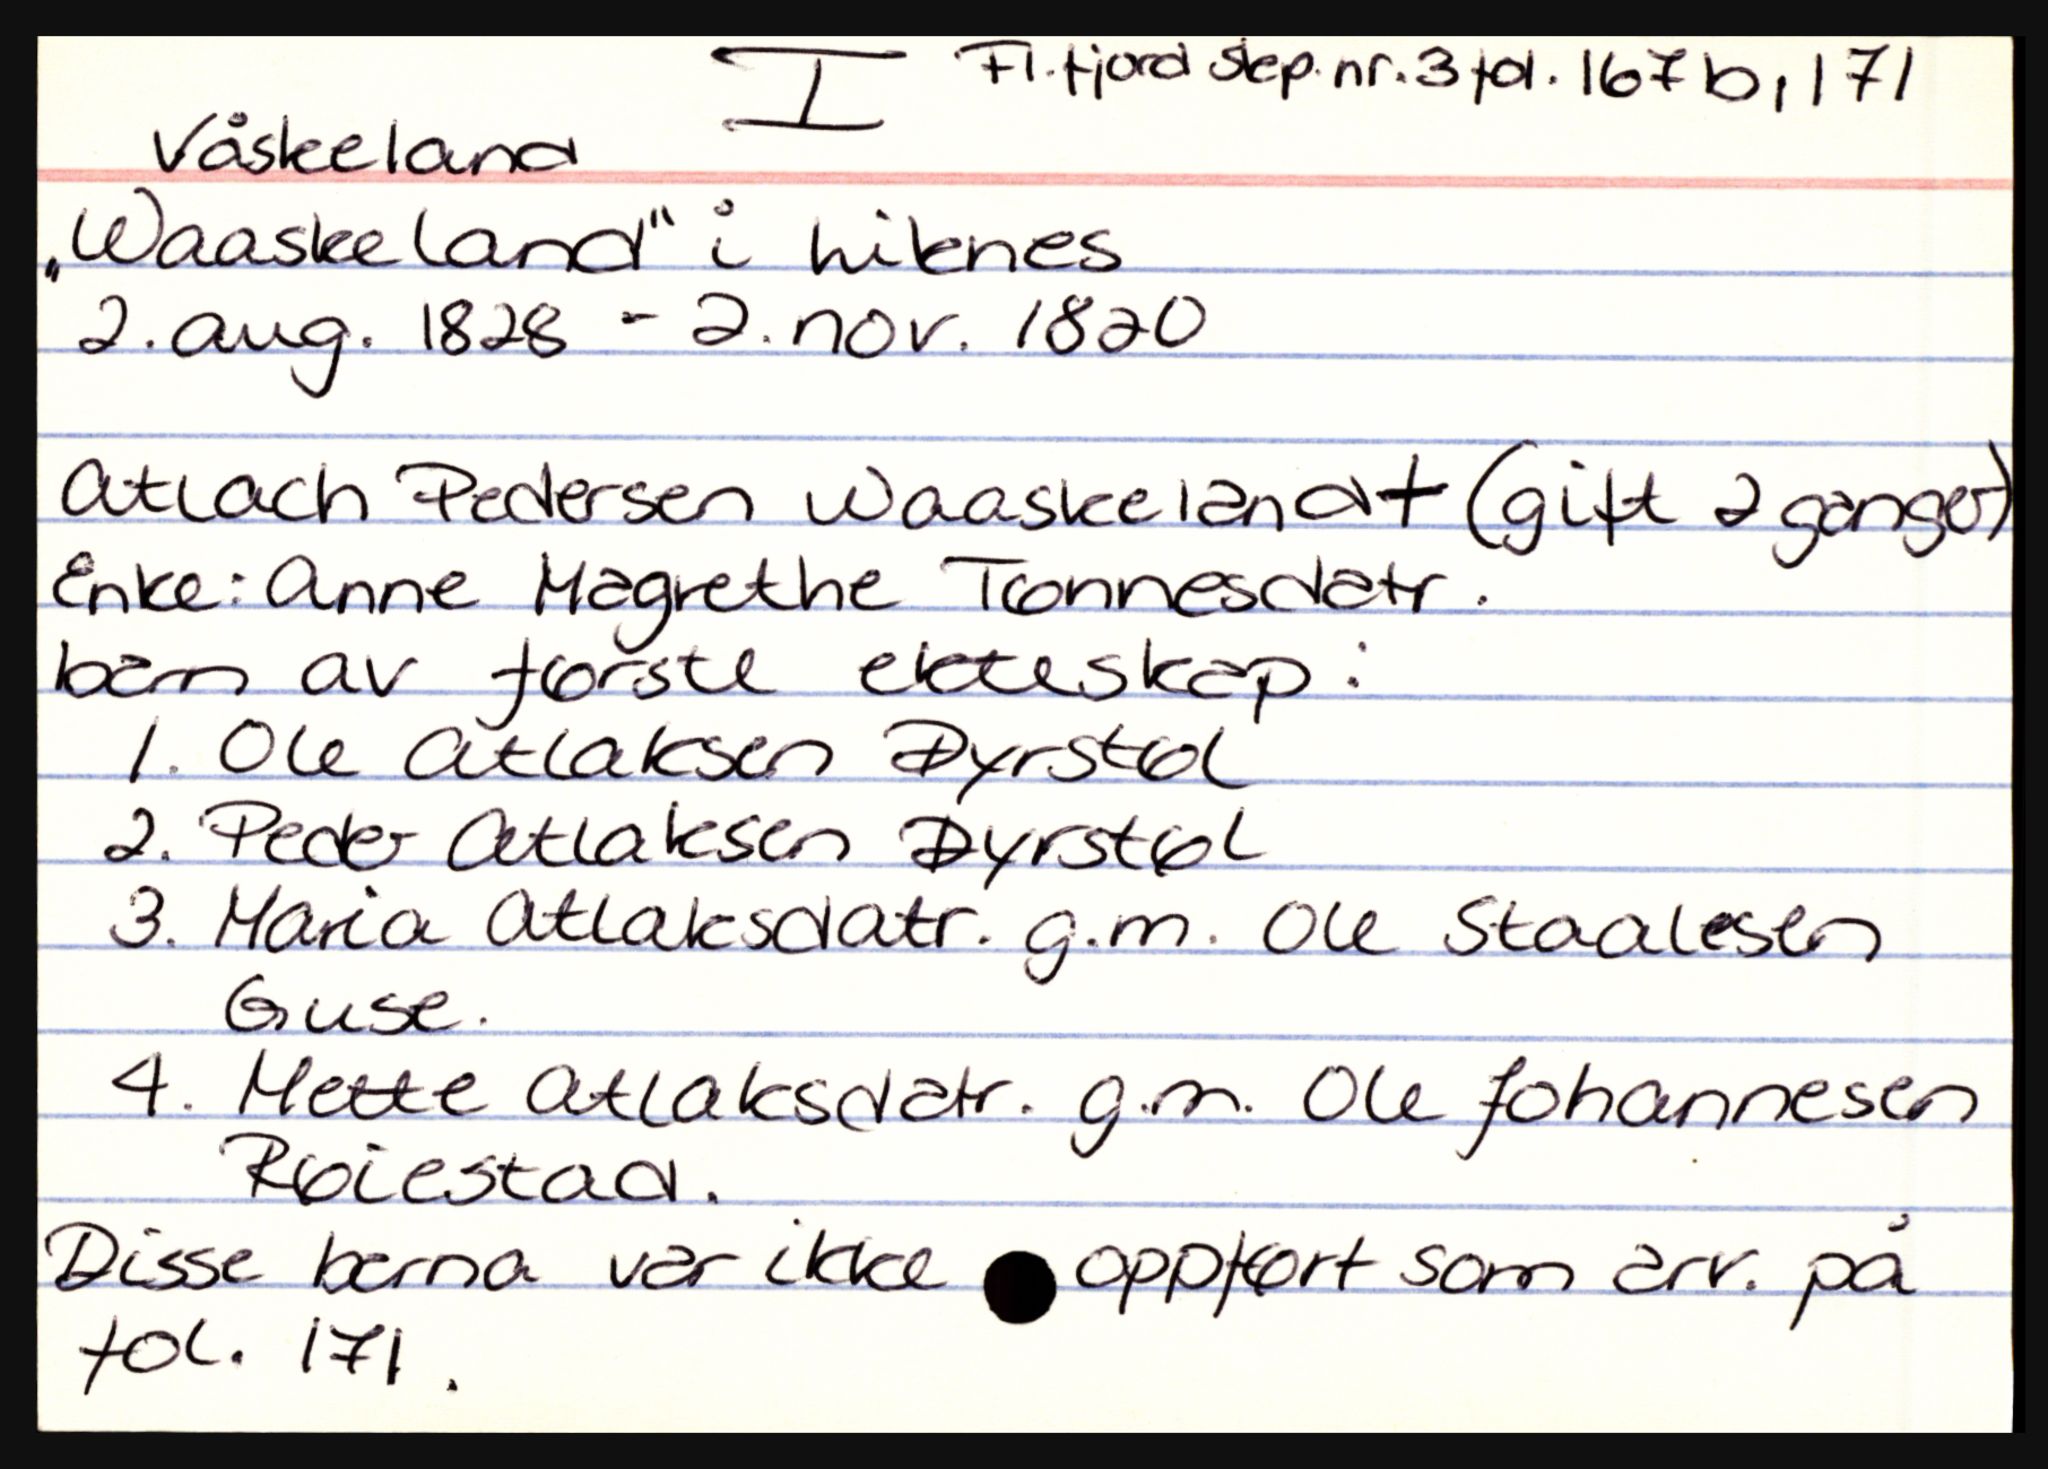 I Fl.fjord skp. nr. 3 fol. 167b, 171
Våskeland
„Waaskeland" i Liknes
2. aug. 1828 - 2. nov. 1820

Atlach Pedersen Waaskeland † (gift 2 ganger)
Enke: Anne Magrethe Tønnesdatr.
barn av første ekteskap:
1. Ole Atlaksen Dyrstøl
2. Peder Atlaksen Dyrstøl
3. Maria Atlaksdatr. g.m. Ole Staalesen
Guse.
4. Mette Atlaksdatr. g.m. Ole Johannesen
Røiestad.
Disse barna var ikke oppført som arv. på
fol. 171.